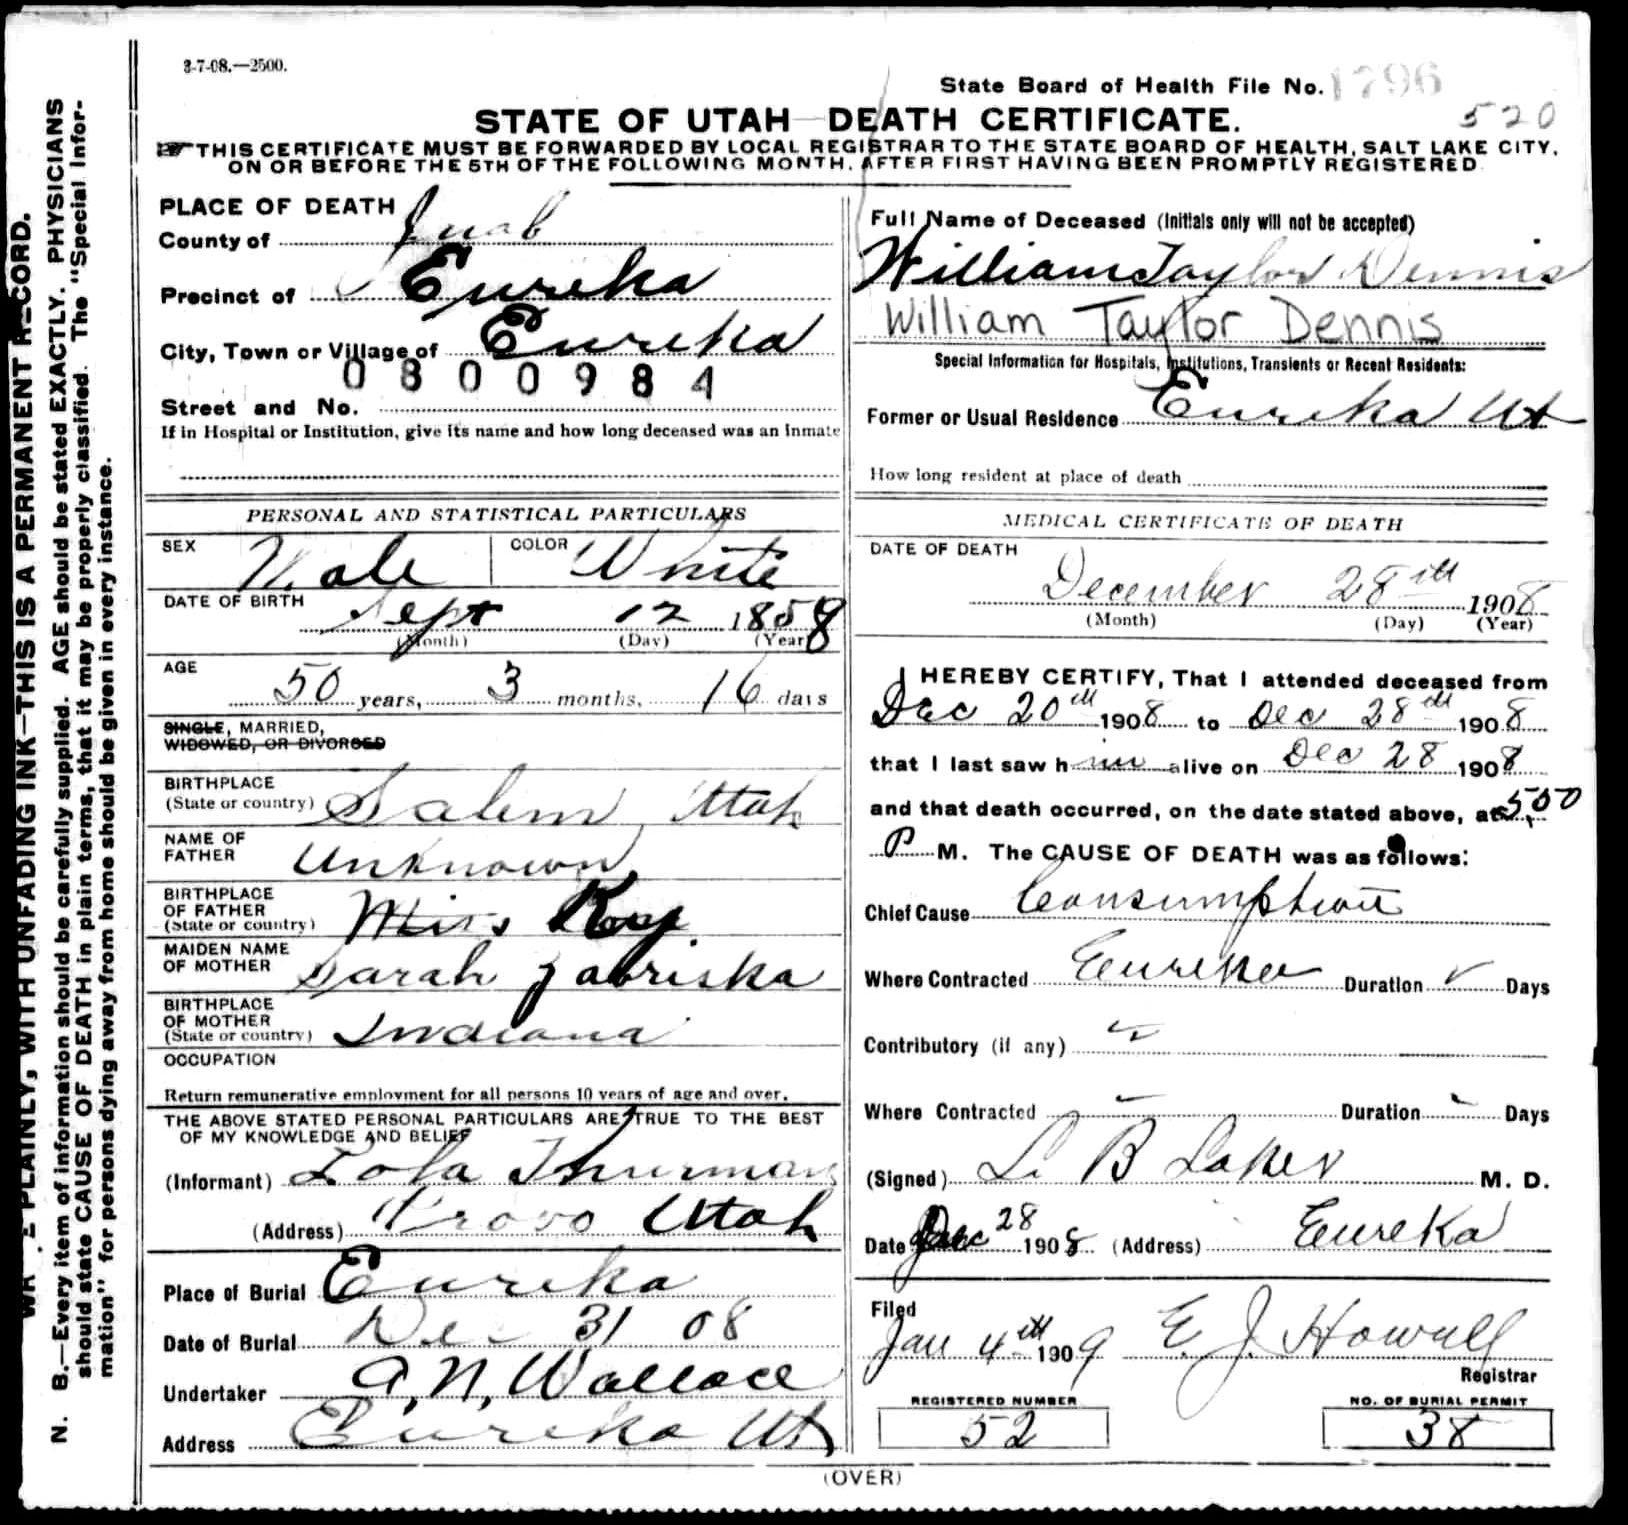 3-7-08.—2500.
State Board of Health File No. 1796
520
STATE OF UTAH—DEATH CERTIFICATE.
THIS CERTIFICATE MUST BE FORWARDED BY LOCAL REGISTRAR TO THE STATE BOARD OF HEALTH, SALT LAKE CITY,
ON OR BEFORE THE 5TH OF THE FOLLOWING MONTH, AFTER FIRST HAVING BEEN PROMPTLY REGISTERED
PLACE OF DEATH
County of Juab
Precinct of Eureka
City, Town or Village of Eureka
0800984
Street and No.
If in Hospital or Institution, give its name and how long deceased was an inmate
Full Name of Deceased (Initials only will not be accepted)
William Taylor Dennis
William Taylor Dennis
Special Information for Hospitals, Institutions, Transients or Recent Residents:
Former or Usual Residence Eureka Ut
How long resident at place of death
PERSONAL AND STATISTICAL PARTICULARS
SEX Male COLOR White
DATE OF BIRTH Sept 12 1858
(Month) (Day) (Year)
AGE 50 years, 3 months, 16 days
SINGLE, MARRIED,
WIDOWED, OR DIVORCED
BIRTHPLACE
(State or country) Salem, Utah
NAME OF
FATHER Unknown
BIRTHPLACE
OF FATHER
(State or country)
MAIDEN NAME
OF MOTHER Sarah Zabriska
BIRTHPLACE
OF MOTHER
(State or country) Indiana
OCCUPATION
Return remunerative employment for all persons 10 years of age and over.
THE ABOVE STATED PERSONAL PARTICULARS ARE TRUE TO THE BEST
OF MY KNOWLEDGE AND BELIEF
(Informant) Lola Thurman
(Address) Provo Utah
Place of Burial Eureka
Date of Burial Dec 31 08
Undertaker A. N. Wallace
Address Eureka Ut
MEDICAL CERTIFICATE OF DEATH
DATE OF DEATH
December 28th 1908
(Month) (Day) (Year)
I HEREBY CERTIFY, That I attended deceased from
Dec 20th 1908 to Dec 28th 1908
that I last saw him alive on Dec 28 1908
and that death occurred, on the date stated above, at 5,00
P M. The CAUSE OF DEATH was as follows:
Chief Cause Consumption
Where Contracted Eureka Duration Days
Contributory (if any)
Where Contracted Duration Days
(Signed) L B Laker M. D.
Date Dec 28 1908 (Address) Eureka
Filed
Jan 4th 1909 E. J. Howell
Registrar
REGISTERED NUMBER
52
NO. OF BURIAL PERMIT
38
(OVER)
WRITE PLAINLY, WITH UNFADING INK—THIS IS A PERMANENT RECORD.
N. B.—Every item of information should be carefully supplied. AGE should be stated EXACTLY. PHYSICIANS
should state CAUSE OF DEATH in plain terms, that it may be properly classified. The "Special Infor-
mation" for persons dying away from home should be given in every instance.